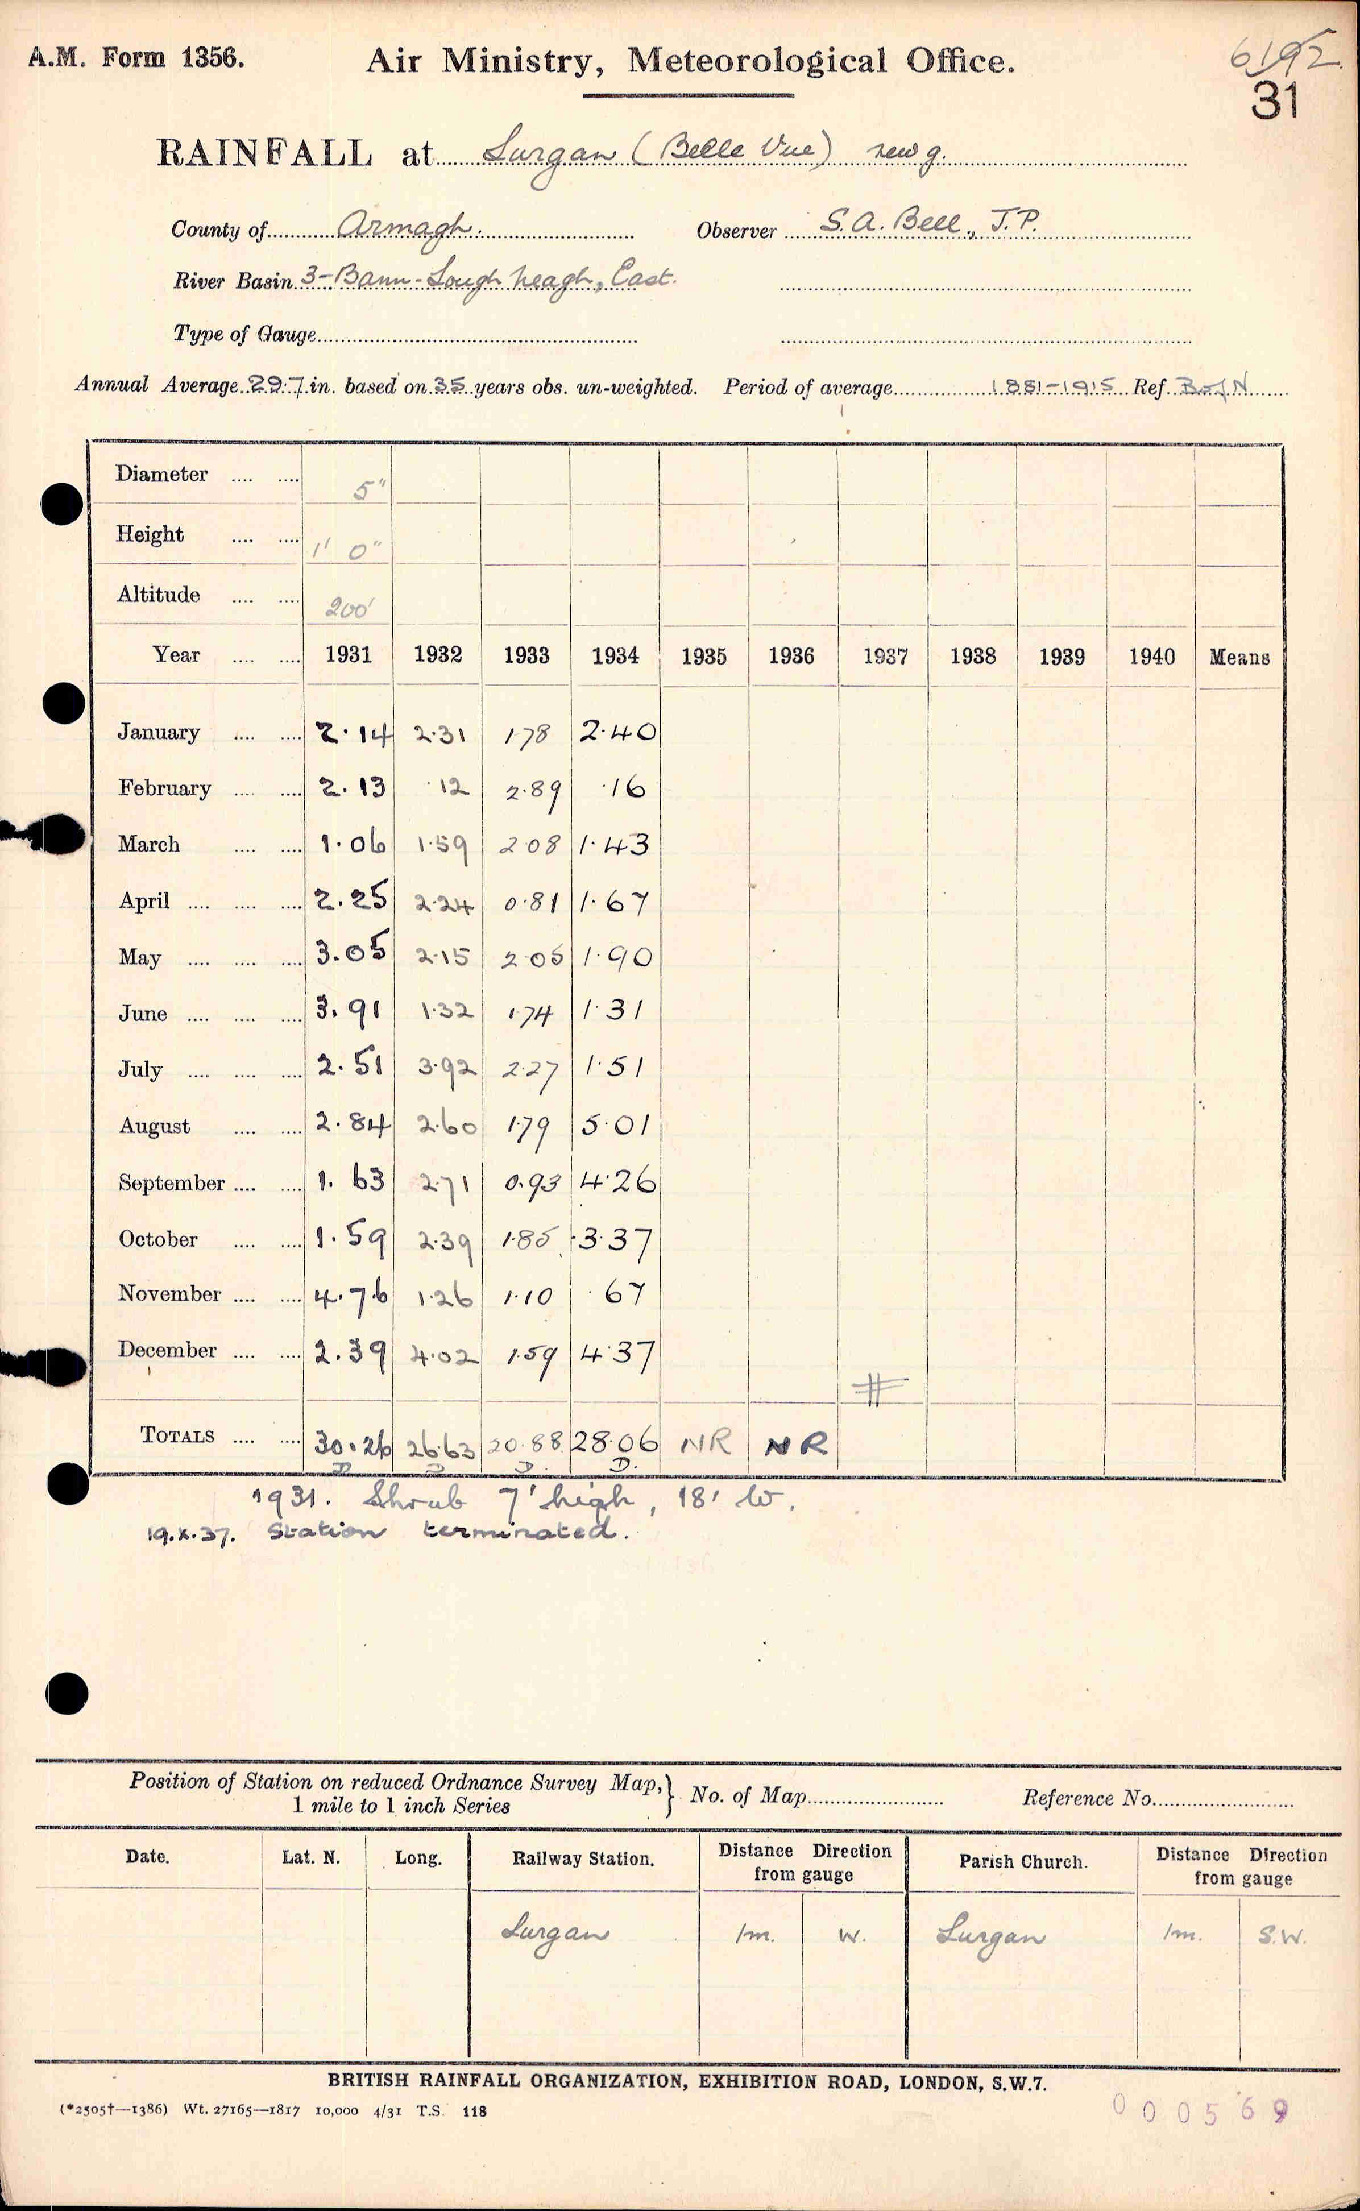 A.M. Form 1356. Air Ministry, Meteorological Office. 6192
31
RAINFALL at Lurgan (Belle Vue) new g.
County of Armagh. Observer S.A. Bell, J.P.
River Basin 3-Bann-Lough Neagh, East.
Type of Gauge
Annual Average 29.7 in. based on 35 years obs. un-weighted. Period of average 1881-1915 Ref. B of N
Diameter 5"
Height 1' 0"
Altitude 200'
Year 1931 1932 1933 1934 1935 1936 1937 1938 1939 1940 Means
January 2.14 2.31 1.78 2.40
February 2.13 .12 2.89 .16
March 1.06 1.59 2.08 1.43
April 2.25 2.24 0.81 1.67
May 3.05 2.15 2.05 1.90
June 3.91 1.32 1.74 1.31
July 2.51 3.92 2.27 1.51
August 2.84 2.60 1.79 5.01
September 1.63 2.71 0.93 4.26
October 1.59 2.39 1.85 3.37
November 4.76 1.26 1.10 .67
December 2.39 4.02 1.59 4.37
TOTALS 30.26 26.63 20.88 28.06 NR NR
D D D. D.
1931. Shrub 7' high, 18' W.
19.X.37. Station terminated.
Position of Station on reduced Ordnance Survey Map, } No. of Map Reference No.
1 mile to 1 inch Series
Date. Lat. N. Long. Railway Station. Distance Direction from gauge Parish Church. Distance Direction from gauge
Lurgan 1m. W. Lurgan 1m. S.W.
BRITISH RAINFALL ORGANIZATION, EXHIBITION ROAD, LONDON, S.W.7.
(*2505†—1386) Wt. 27165—1817 10,000 4/31 T.S. 118
000569